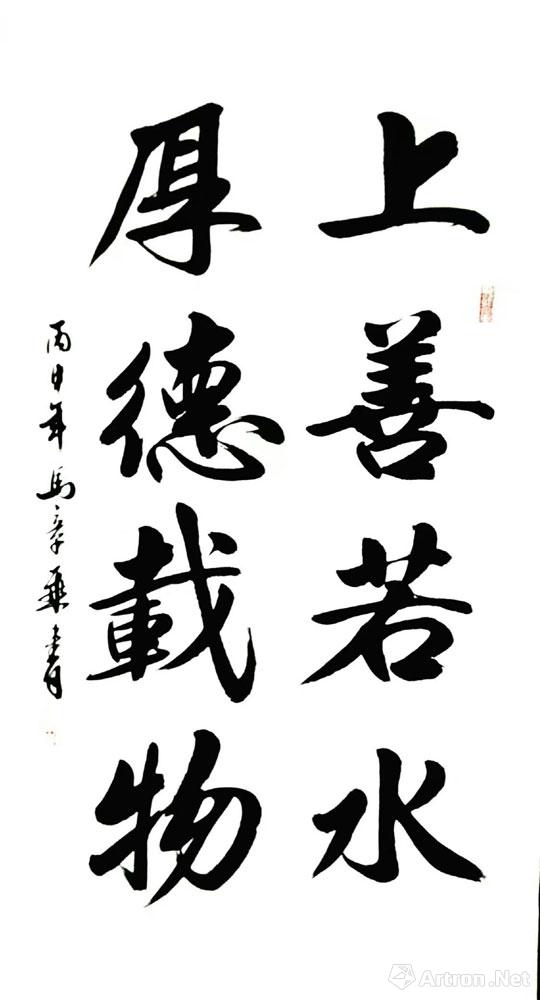 上善若水
厚德載物
丙申年 馬章乘書
Artron.Net